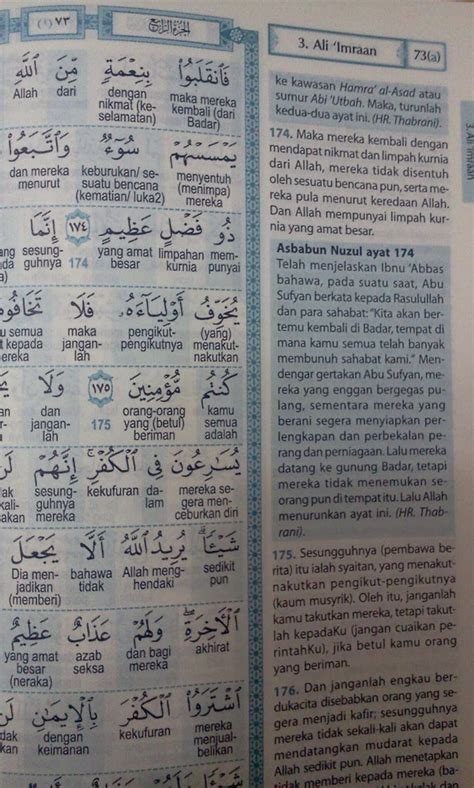 ٧٣ (١)
الجزء الرابع
فَانْقَلَبُوا بِنِعْمَةٍ مِّنَ اللَّهِ
maka mereka kembali (dari Badar)
dengan nikmat (keselamatan)
dari
Allah
يَمْسَسْهُمْ سُوٓءٌ وَاتَّبَعُوا
menyentuh (menimpa) mereka
keburukan/ sesuatu bencana (kematian/ luka2)
dan mereka menurut
ذُو فَضْلٍ عَظِيمٍ ١٧٤ إِنَّمَا
limpahan kurnia
mempunyai
yang amat besar
174
يُخَوِّفُ أَوْلِيَآءَهُۥ فَلَا تَخَافُوهُمْ
(yang) menakut-nakutkan
pengikut-pengikutnya
maka jangan-lah
كُنتُم مُّؤْمِنِينَ ١٧٥ وَلَا
kamu semua adalah
orang-orang yang (betul) beriman
175
dan jangan-lah
يُسَارِعُونَ فِى الْكُفْرِ إِنَّهُمْ لَن
mereka segera menceburkan diri
da-lam
kekufuran
sesung-guhnya mereka
شَيْـًٔا يُرِيدُ اللَّهُ أَلَّا يَجْعَلَ
sedikit pun
Allah meng-hendaki
bahawa tidak
Dia men-jadikan (memberi)
الْآخِرَةِ وَلَهُمْ عَذَابٌ عَظِيمٌ
akhirat
dan bagi mereka
azab seksa
yang amat besar (neraka)
اشْتَرَوُا الْكُفْرَ بِالْإِيمَانِ لَن
mereka menjual-belikan
kekufuran
dengan keimanan
3. Ali 'Imraan
73(a)
ke kawasan Hamra' al-Asad atau
sumur Abi 'Utbah. Maka, turunlah
kedua-dua ayat ini. (HR. Thabrani).
174. Maka mereka kembali dengan
mendapat nikmat dan limpah kurnia
dari Allah, mereka tidak disentuh
oleh sesuatu bencana pun, serta me-
reka pula menurut keredaan Allah.
Dan Allah mempunyai limpah kur-
nia yang amat besar.
Asbabun Nuzul ayat 174
Telah menjelaskan Ibnu 'Abbas
bahawa, pada suatu saat, Abu
Sufyan berkata kepada Rasulullah
dan para sahabat: "Kita akan ber-
temu kembali di Badar, tempat di
mana kamu semua telah banyak
membunuh sahabat kami." Men-
dengar gertakan Abu Sufyan, me-
reka yang enggan bergegas pu-
lang, sementara mereka yang
berani segera menyiapkan per-
lengkapan dan perbekalan pe-
rang dan perniagaan. Lalu mereka
datang ke gunung Badar, tetapi
mereka tidak menemukan se-
orang pun di tempat itu. Lalu Allah
menurunkan ayat ini. (HR. Thab-
rani).
175. Sesungguhnya (pembawa be-
rita) itu ialah syaitan, yang menakut-
nakutkan pengikut-pengikutnya
(kaum musyrik). Oleh itu, janganlah
kamu takutkan mereka, tetapi takut-
lah kepadaKu (jangan cuaikan pe-
rintahKu), jika betul kamu orang
yang beriman.
176. Dan janganlah engkau ber-
dukacita disebabkan orang yang se-
gera menjadi kafir; sesungguhnya
mereka tidak sekali-kali akan dapat
mendatangkan mudarat kepada
Allah sedikit pun. Allah menetapkan
tidak memberi kepada mereka (ba-